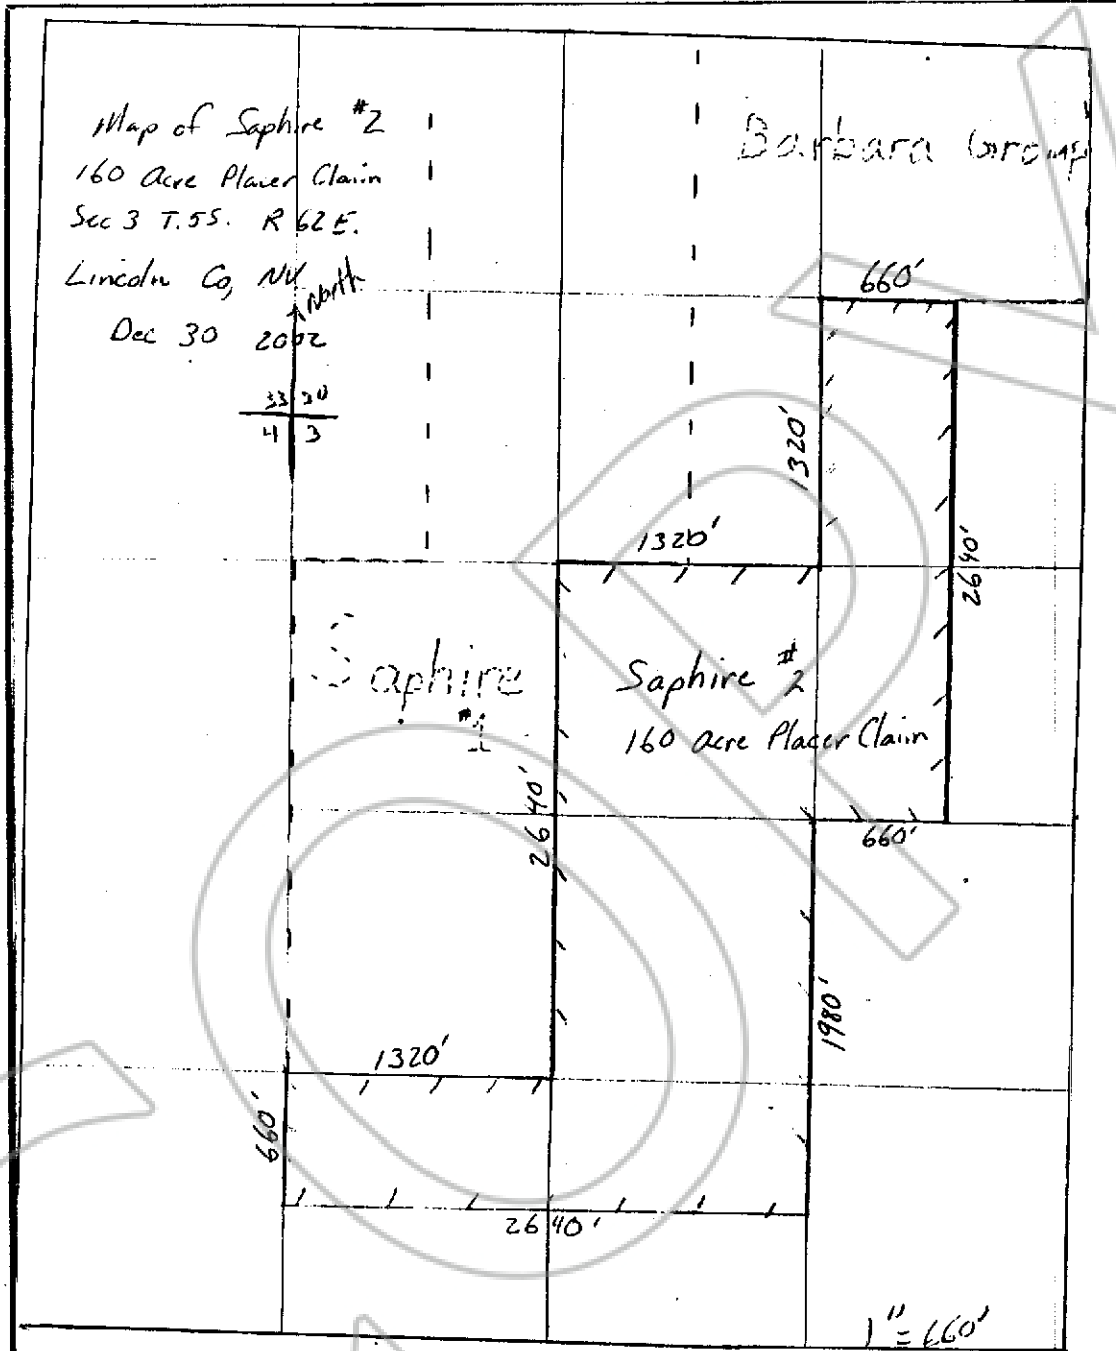 Map of Saphire #2
160 Acre Placer Claim
Sec 3 T.5S. R 62 E.
Lincoln Co, NV
North
Dec 30 2002
33
4 3
Barbara Group
660'
1320'
1320'
2640'
Saphire
#1
Saphire #2
160 acre Placer Claim
2640'
660'
1980'
1320'
660'
2640'
1" = 660'